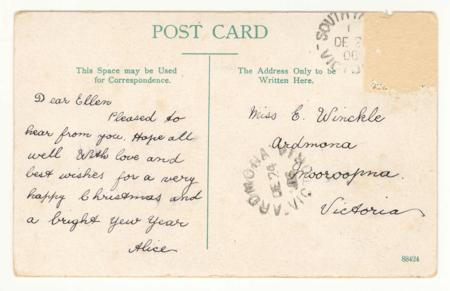 POST CARD
This Space may be Used
for Correspondence.
The Address Only to be
Written Here.
Dear Ellen
Pleased to
hear from you. Hope all
well With love and
best wishes for a very
happy Christmas and
a bright New Year
Alice
Miss E. Winckle
Ardmona
Mooroopna.
Victoria
ARDMONA
DE 24
SOUTH
DE 2
06
88424